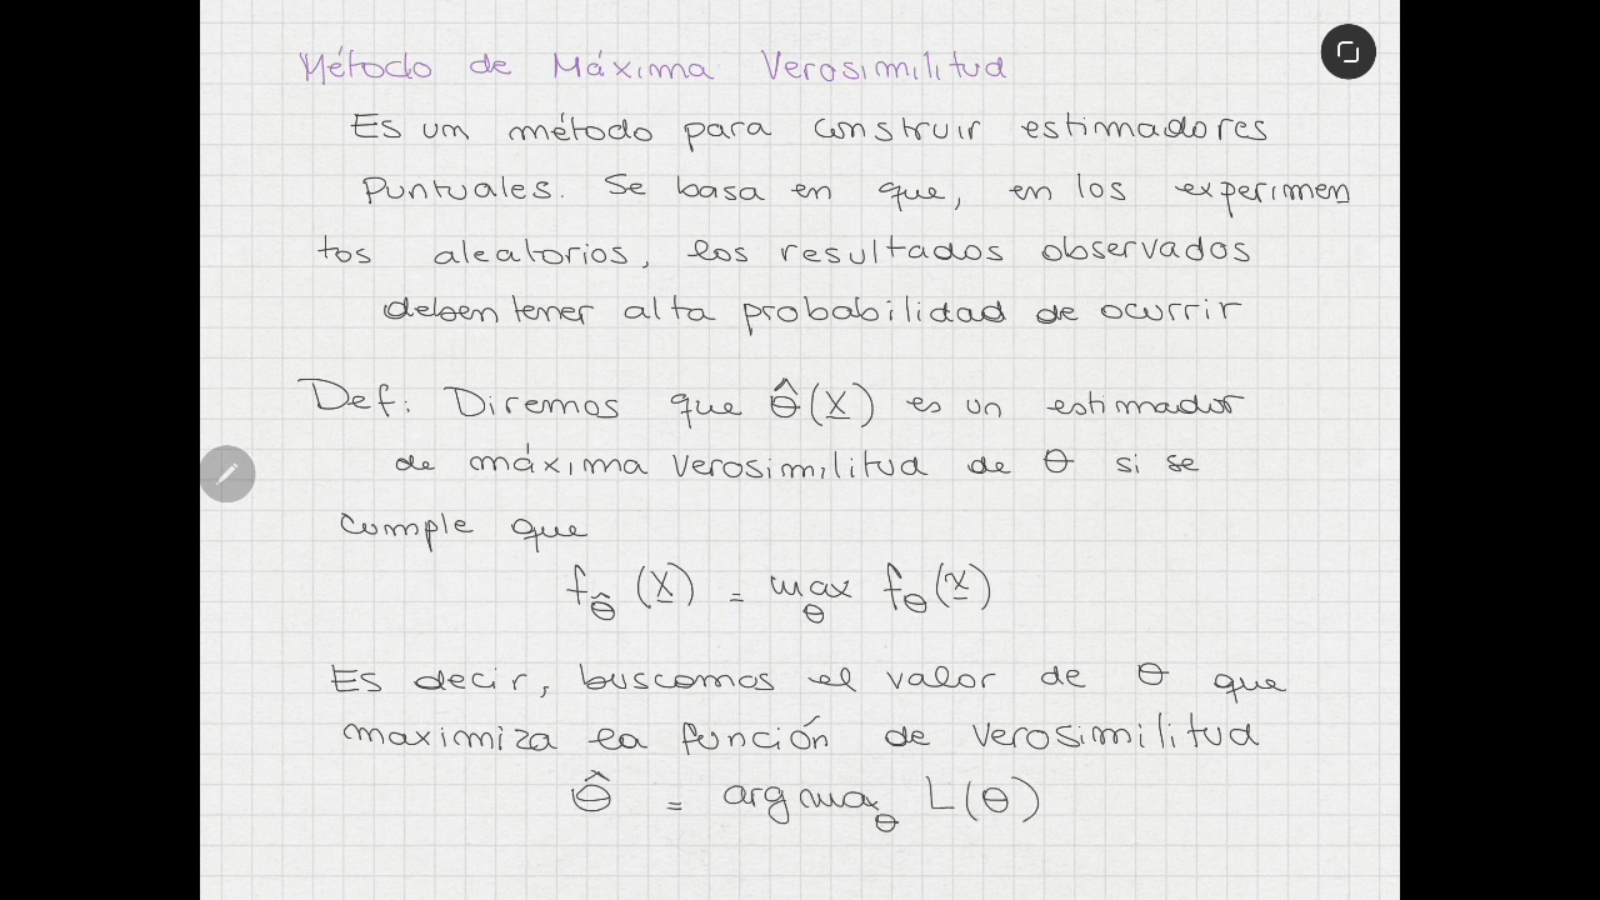 Método de Máxima Verosimilitud
Es un método para construir estimadores
puntuales. Se basa en que, en los experimen
tos aleatorios, los resultados observados
deben tener alta probabilidad de ocurrir
Def: Diremos que θ̂(X̲) es un estimador
de máxima verosimilitud de θ si se
cumple que
f_θ̂(X̲) = max_θ f_θ(x̲)
Es decir, buscamos el valor de θ que
maximiza la función de verosimilitud
θ̂ = arg max_θ L(θ)